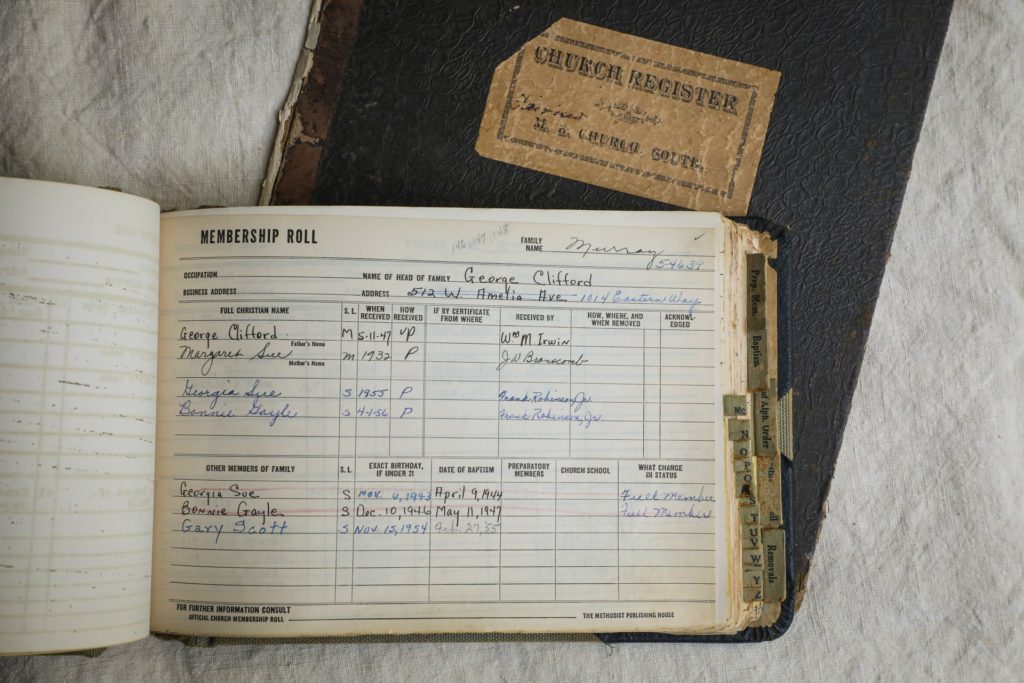 CHURCH REGISTER
M. E. CHURCH, SOUTH,
MEMBERSHIP ROLL
FAMILY NAME Murray
54639
OCCUPATION NAME OF HEAD OF FAMILY George Clifford
BUSINESS ADDRESS ADDRESS 512 W. Amelia Ave. - 1014 Eastern Way
FULL CHRISTIAN NAME S. L. WHEN RECEIVED HOW RECEIVED IF BY CERTIFICATE FROM WHERE RECEIVED BY HOW, WHERE, AND WHEN REMOVED ACKNOWL-EDGED
George Clifford M 5-11-47 VP Wm M. Irwin
Father's Name
Margaret Sue m 1932 P J W Branscomb
Mother's Name
Georgia Sue S 1955 P Frank Robinson, Jr.
Bonnie Gayle S 4-1-56 P Frank Robinson, Jr.
OTHER MEMBERS OF FAMILY S. L. EXACT BIRTHDAY, IF UNDER 21 DATE OF BAPTISM PREPARATORY MEMBERS CHURCH SCHOOL WHAT CHANGE IN STATUS
Georgia Sue S Nov. 4, 1943 April 9, 1944 Full Member
Bonnie Gayle S Dec. 10, 1946 May 11, 1947 Full Member
Gary Scott S Nov. 15, 1954 Feb. 27, '55
FOR FURTHER INFORMATION CONSULT
OFFICIAL CHURCH MEMBERSHIP ROLL THE METHODIST PUBLISHING HOUSE
Prep. Mem.
Baptism
of Alph. Order
Mc
N
O
P
S
T
U
V
W
Y
Z
Removals